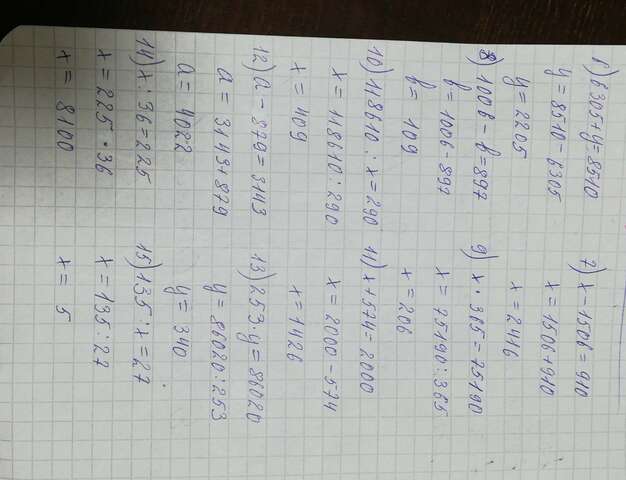 6) 6305+y=8510
y=8510-6305
y=2205
7) x-1506=910
x=1506+910
x=2416
8) 1006-b=897
b=1006-897
b=109
9) x·365=75190
x=75190:365
x=206
10) 118610:x=290
x=118610:290
x=409
11) x+574=2000
x=2000-574
x=1426
12) a-879=3143
a=3143+879
a=4022
13) 253·y=86020
y=86020:253
y=340
14) x:36=225
x=225·36
x=8100
15) 135:x=27
x=135:27
x=5